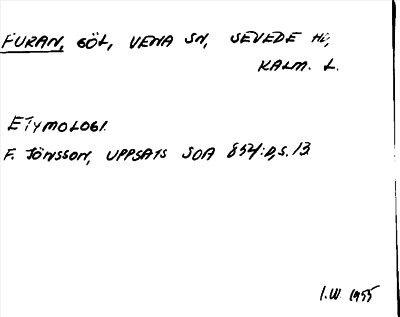 FURAN, GÖL, VENA SN, SEVEDE HD,
KALM. L.
ETYMOLOGI.
F. JÖNSSON, UPPSATS SOA 854:D, S. 13.
I.W. 1955